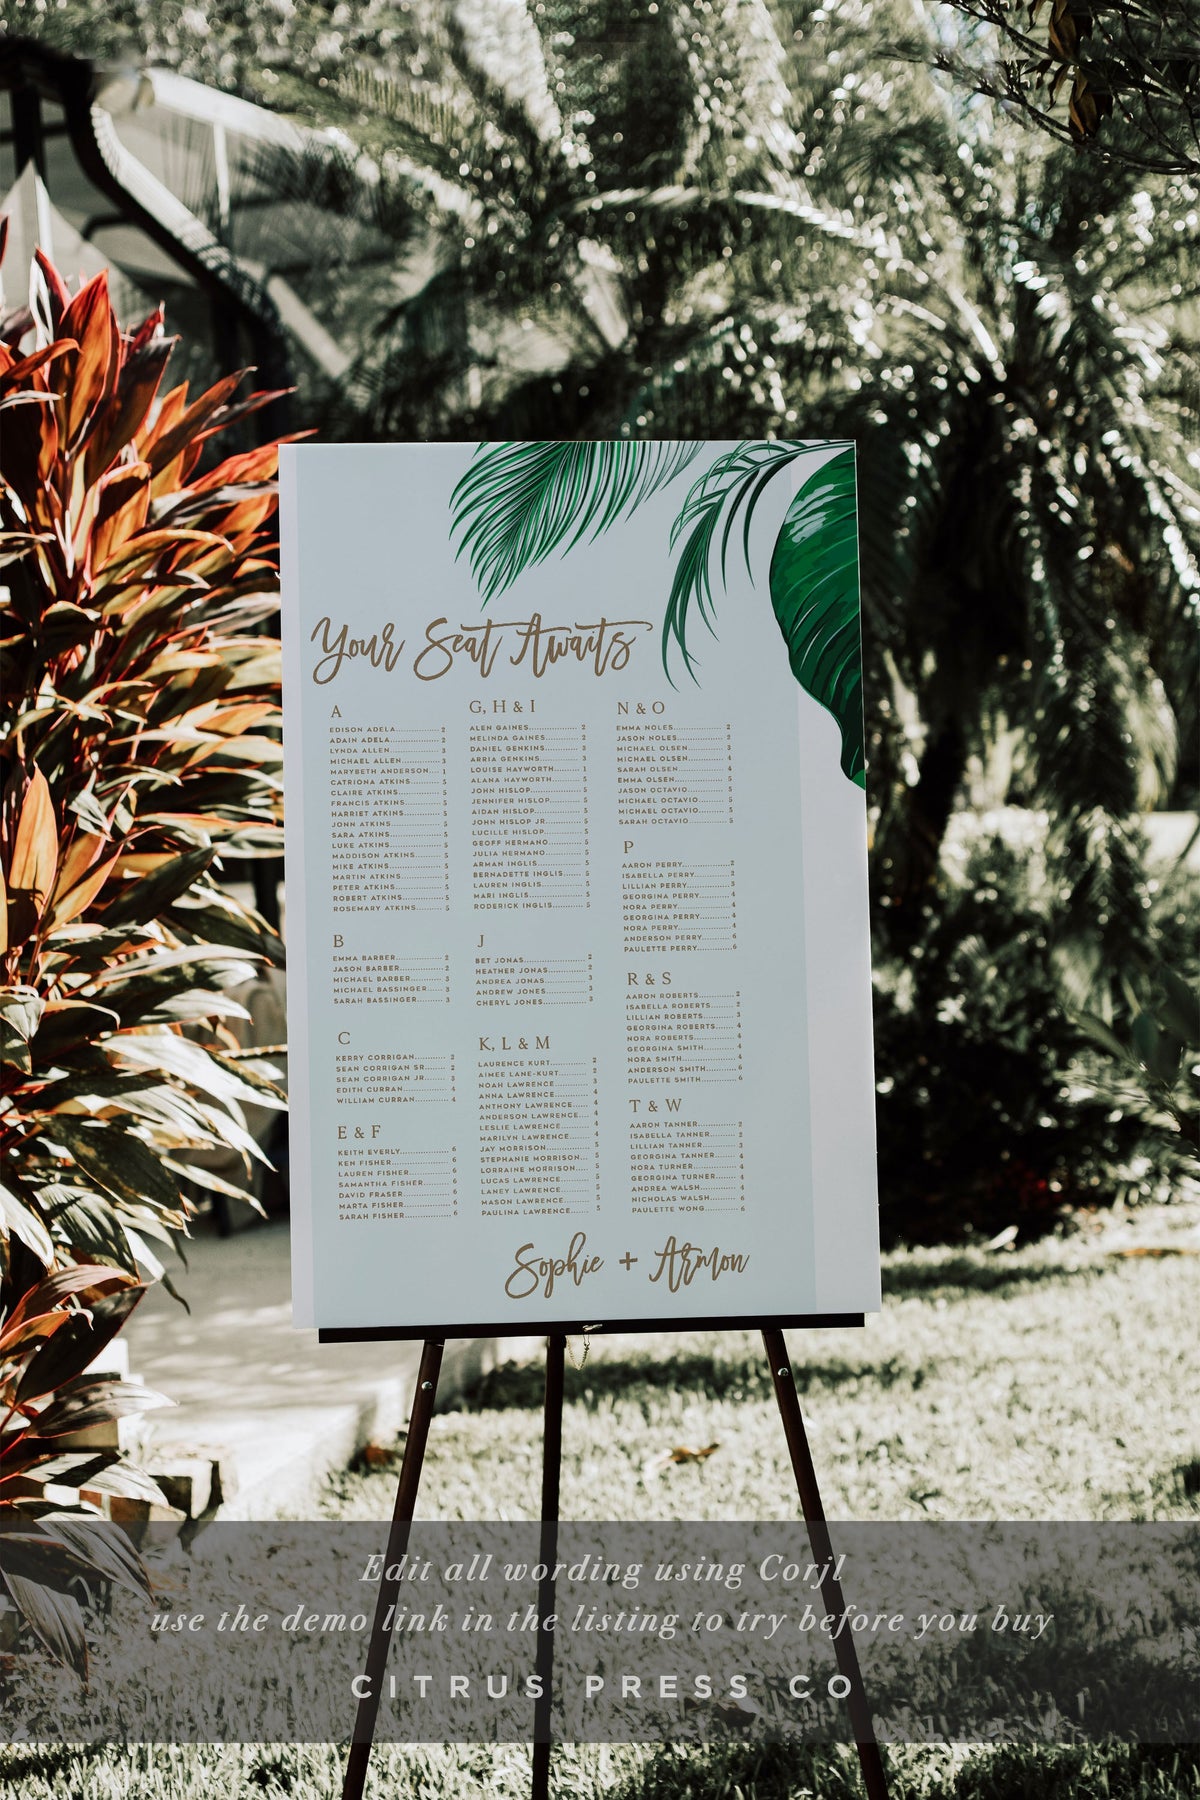 Your Seat Awaits
A
EDISON ADELA 2
ADAIN ADELA 2
LYNDA ALLEN 3
MICHAEL ALLEN 3
MARYBETH ANDERSON 1
CATRIONA ATKINS 5
CLAIRE ATKINS 5
FRANCIS ATKINS 5
HARRIET ATKINS 5
JONN ATKINS 5
SARA ATKINS 5
LUKE ATKINS 5
MADDISON ATKINS 5
MIKE ATKINS 5
MARTIN ATKINS 5
PETER ATKINS 5
ROBERT ATKINS 5
ROSEMARY ATKINS 5
B
EMMA BARBER 2
JASON BARBER 2
MICHAEL BARBER 3
MICHAEL BASSINGER 3
SARAH BASSINGER 3
C
KERRY CORRIGAN 2
SEAN CORRIGAN SR 2
SEAN CORRIGAN JR 3
EDITH CURRAN 4
WILLIAM CURRAN 4
E & F
KEITH EVERLY 6
KEN FISHER 6
LAUREN FISHER 6
SAMANTHA FISHER 6
DAVID FRASER 6
MARTA FISHER 6
SARAH FISHER 6
G, H & I
ALEN GAINES 2
MELINDA GAINES 2
DANIEL GENKINS 3
ARRIA GENKINS 3
LOUISE HAYWORTH 1
ALANA HAYWORTH 5
JOHN HISLOP 5
JENNIFER HISLOP 5
AIDAN HISLOP 5
JOHN HISLOP JR 5
LUCILLE HISLOP 5
GEOFF HERMANO 5
JULIA HERMANO 5
ARMAN INGLIS 5
BERNADETTE INGLIS 5
LAUREN INGLIS 5
MARI INGLIS 5
RODERICK INGLIS 5
J
BET JONAS 2
HEATHER JONAS 2
ANDREA JONAS 3
ANDREW JONES 3
CHERYL JONES 3
K, L & M
LAURENCE KURT 2
AIMEE LANE-KURT 2
NOAH LAWRENCE 3
ANNA LAWRENCE 4
ANTHONY LAWRENCE 4
ANDERSON LAWRENCE 4
LESLIE LAWRENCE 4
MARILYN LAWRENCE 4
JAY MORRISON 5
STEPHANIE MORRISON 5
LORRAINE MORRISON 5
LUCAS LAWRENCE 5
LANEY LAWRENCE 5
MASON LAWRENCE 5
PAULINA LAWRENCE 5
N & O
EMMA NOLES 2
JASON NOLES 2
MICHAEL OLSEN 3
MICHAEL OLSEM 4
SARAH OLSEN 4
EMMA OLSEN 5
JASON OCTAVIO 5
MICHAEL OCTAVIO 5
MICHAEL OCTAVIO 5
SARAH OCTAVIO 5
P
AARON PERRY 2
ISABELLA PERRY 2
LILLIAN PERRY 3
GEORGINA PERRY 4
NORA PERRY 4
GEORGINA PERRY 4
NORA PERRY 4
ANDERSON PERRY 6
PAULETTE PERRY 6
R & S
AARON ROBERTS 2
ISABELLA ROBERTS 2
LILLIAN ROBERTS 3
GEORGINA ROBERTS 4
NORA ROBERTS 4
GEORGINA SMITH 4
NORA SMITH 4
ANDERSON SMITH 6
PAULETTE SMITH 6
T & W
AARON TANNER 2
ISABELLA TANNER 2
LILLIAN TANNER 3
GEORGINA TANNER 4
NORA TURNER 4
GEORGINA TURNER 4
ANDREA WALSH 4
NICHOLAS WALSH 6
PAULETTE WONG 6
Sophie + Armon
Edit all wording using Corjl
use the demo link in the listing to try before you buy
CITRUS PRESS CO